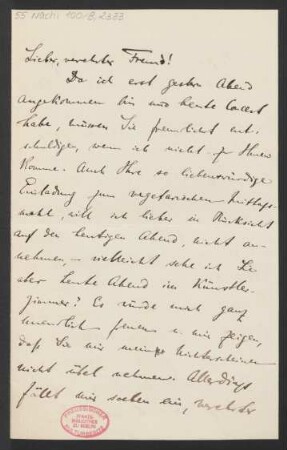 55 Nachl 100/B, 2333
Lieber, verehrter Freund!
Da ich erst gestern Abend
angekommen bin und heute Concert
habe, müssen Sie freundlichst ent-
schuldigen, wenn ich nicht zu Ihnen
komme. Auch Ihre so liebenswürdige
Einladung zum vegetarischen Mittags-
mahl, will ich lieber in Rücksicht
auf den heutigen Abend, nicht an-
nehmen, – vielleicht sehe ich Sie
aber heute Abend im Künstler-
zimmer? Es würde mich ganz
unendlich freuen u. mir zeigen,
daß Sie mir mein Nichterscheinen
nicht übel nehmen. Allerdings
fällt mir soeben ein, verehrter